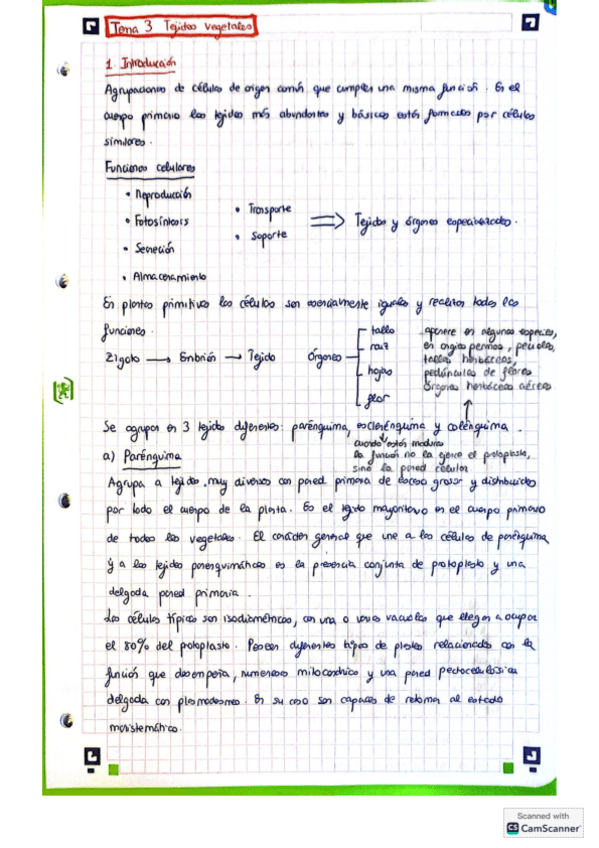 Tema 3 Tejidos vegetales
1. Introducción
Agrupaciones de células de origen común que cumplen una misma función. En el
cuerpo primario los tejidos más abundantes y básicos están formados por células
similares.
Funciones celulares
• Reproducción
• Fotosíntesis
• Secreción
• Almacenamiento
• Transporte
• Soporte
⇒ Tejidos y órganos especializados.
En plantas primitivas las células son esencialmente iguales y realizan todas las
funciones.
Zigoto → Embrión → Tejido
Órganos
tallo
raíz
hojas
flor
aparece en algunas especies,
en angiospermas, peciolos,
tallos herbáceos,
pedúnculos de flores
órganos herbáceos aéreos
Se agrupan en 3 tejidos diferentes: parénquima, esclerénquima y colénquima.
cuando están maduras
la función no la ejerce el protoplasto,
sino la pared celular
a) Parénquima
Agrupa a tejidos muy diversos con pared primaria de escaso grosor y distribuidos
por todo el cuerpo de la planta. Es el tejido mayoritario en el cuerpo primario
de todos los vegetales. El carácter general que une a las células de parénquima
y a los tejidos parenquimáticos es la presencia conjunta de protoplasto y una
delgada pared primaria.
Las células típicas son isodiamétricas, con una o varias vacuolas que llegan a ocupar
el 80% del protoplasto. Poseen diferentes tipos de plastos relacionados con la
función que desempeña, numerosas mitocondrias y una pared pectocelulósica
delgada con plasmodesmos. En su caso son capaces de retornar al estado
meristemático.
Scanned with
CS CamScanner